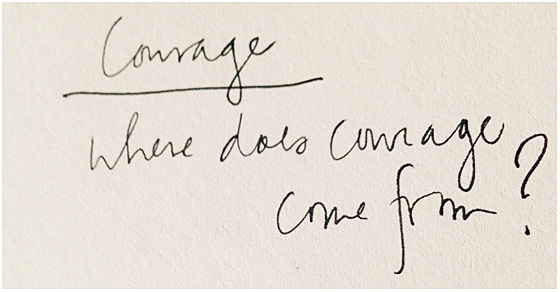 Courage
where does courage
come from?